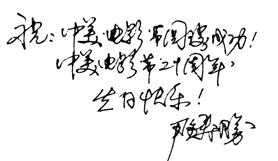 祝：中美电影节圆满成功！
中美电影节二十周年，
生日快乐！